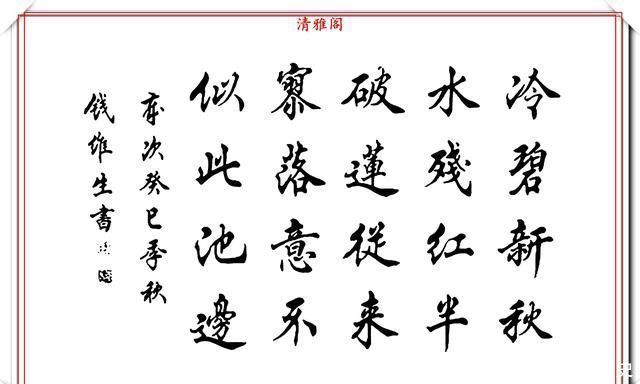 清雅阁
冷碧新秋
水殘红半
破蓮從来
寥落意不
似此池邊
歲次癸巳季秋
钱維生書